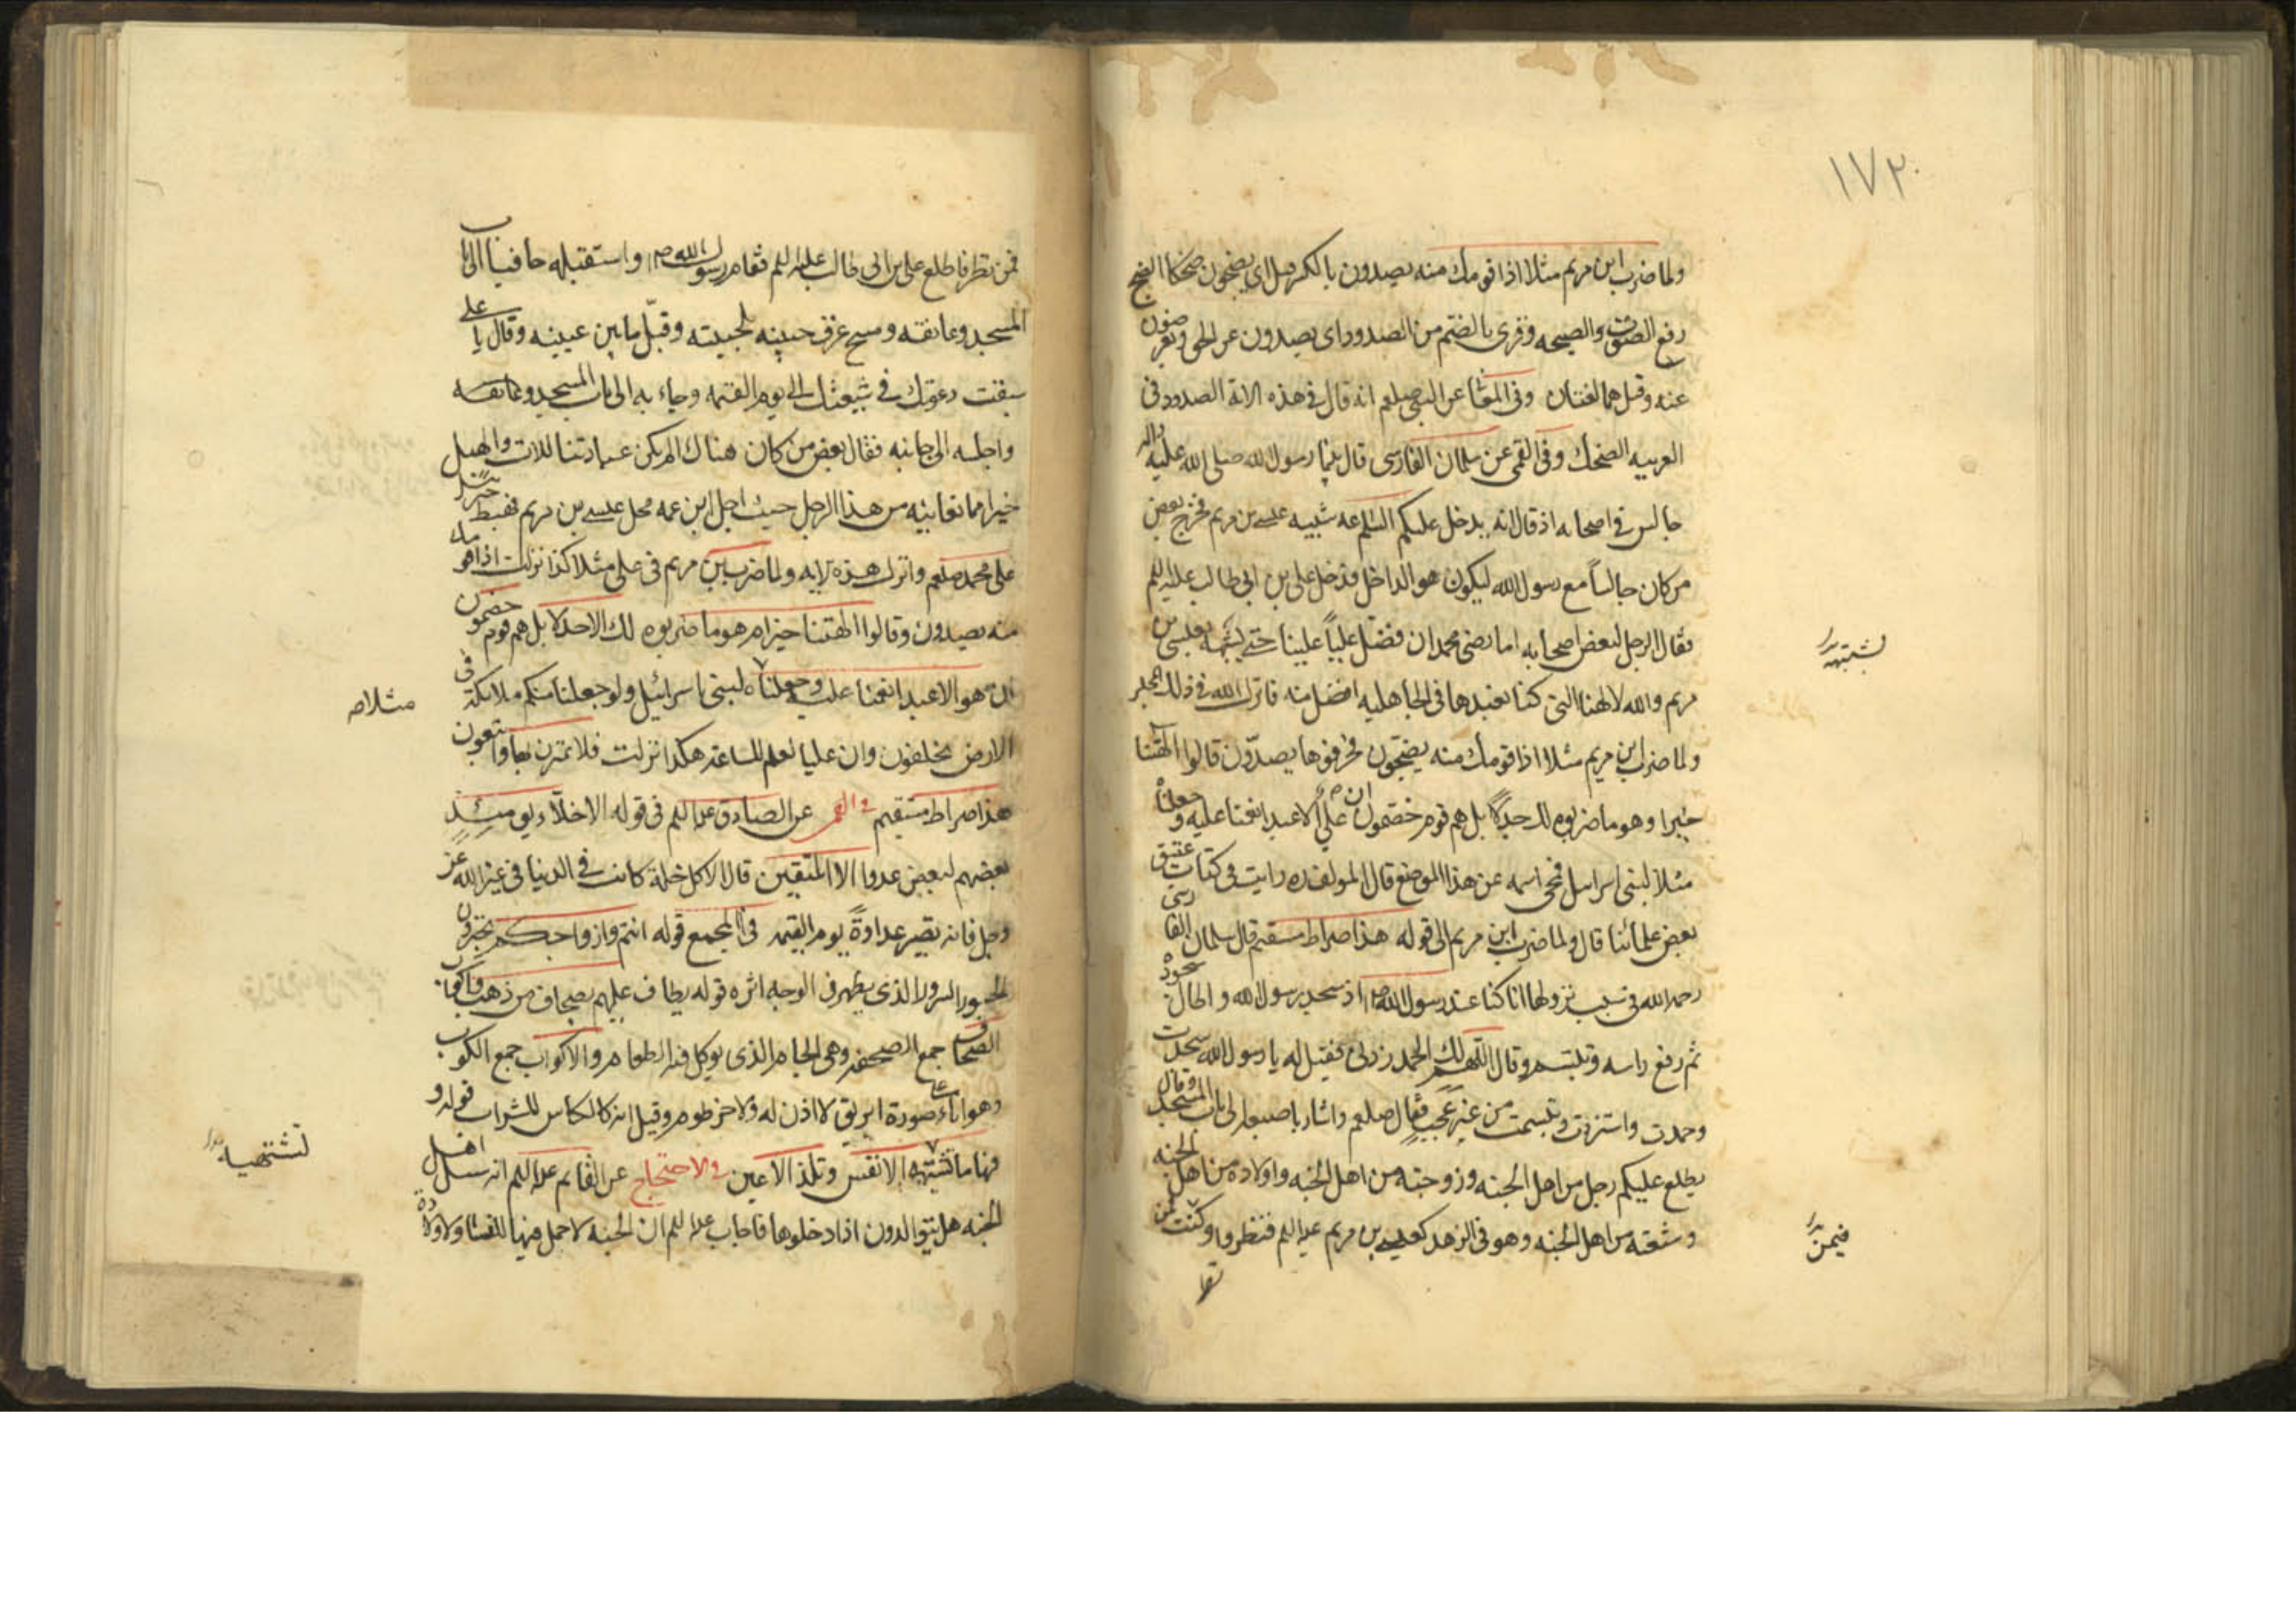 ١٧٣
ولما ضرب ابن مريم مثلا اذا قومك منه يصدون بالكسر قيل اى يضجون ضحكا الضج
رفع الصوت والصيحه وقرى بالضم من الصدود اى يصدون عن الحق ويعرضون
عنه وقيل هما لغتان وفى المعا عن النبى صلعم انه قال فى هذه الاية الصدود فى
العربيه الضحك وفى القمى عن سلمان الفارسى قال بينما رسول الله صلى الله عليه واله
جالس فى اصحابه اذ قال انه يدخل عليكم الساعه شبيه عيسى بن مريم فخرج بعض
من كان جالساً مع رسول الله ليكون هو الداخل فدخل على بن ابى طالب عليه السلم
فقال الرجل لبعض اصحابه اما رضى محمد ان فضل علياً علينا حتى يشبهه بعيسى بن
لشبهه
مريم والله لالهتنا التى كنا نعبدها فى الجاهليه افضل منه فانزل الله فى ذلك المجلس
ولما ضرب ابن مريم مثلا اذا قومك منه يضجون فحرفوها يصدّون قالوا الهتنا
خيرا وهو ما ضربوه لك جدلاً بل هم قوم خصمون ان علىّ الا عبد انعمنا عليه وجعلناه
مثلا لبنى اسراىيل فمحى اسمه عن هذا الموضع قال المولف ره رايت فى كتاب عتيق
بعض علمائنا قال ولما ضرب ابن مريم الى قوله هذا صراط مستقيم قال سلمان الفارسى
رحمه الله فى سبب نزولها انا كنا عند رسول الله ص اذ سجد رسول الله و اطال سجوده
ثم رفع راسه وتبسم وقال اللهم لك الحمد زدنى فقيل له يا رسول الله سجدت
وحمدت واستزدت وتبسمت من غير عجب فقال صلعم واشار باصبعه الى باب المسجد وقال
يطلع عليكم رجل من اهل الجنه وزوجته من اهل الجنه واولاده من اهل الجنه
وشيعته من اهل الجنه وهو فى الزهد كعيسى بن مريم عليه السلم فنظروا وكنت فمن
فيمن
فمن نظر فاطلع على بن ابى طالب عليه السلم فقام رسول الله ص واستقبله حافيا الى باب
المسجد وعانقه ومسح عرق جبينه بلحيته وقبّل ما بين عينيه وقال يا على
سبقت دعوتك فى شيعتك الى يوم القيمه وجاء به الى باب المسجد وعانقه
واجلسه الى جانبه فقال بعض من كان هناك الم يكن عبادتنا للات والهبل
خيرا مما نعاينه من هذا الرجل حيث احل ابن عمه محل عيسى بن مريم فهبط جبرئيل
على محمد صلعم وانزل هذه الايه ولما ضرب ابن مريم فى على مثلا كذا نزلت اذا هو
منه يصدون وقالوا الهتنا خير ام هو ما ضربوه لك الا جدلا بل هم قوم خصمون
ان هو الا عبد انعمنا عليه وجعلناه لبنى اسرائيل ولو جعلنا منكم ملائكة فى
مثلا ص
الارض يخلفون وان عليا لعلم للساعة هكذا نزلت فلا تمترن بها واتبعون
هذا صراط مستقيم والقمى عن الصادق عليه السلم فى قوله الاخلاّء يومئذٍ
بعضهم لبعض عدوا الا المتقين قال الا كل خلة كانت فى الدنيا فى غير الله عز
وجل فانه تصير عداوةً يوم القيمه فى المجمع قوله انتم وازواجكم تحبرون
الحبور السرور الذى يظهر فى الوجه اثره قوله يطاف عليهم بصحاف من ذهب واكواب
الصحاف جمع الصحفه وهى الجام الذى يوكل فيه الطعام والاكواب جمع الكوب
وهو اناء على صورة ابريق لا اذن له ولا خرطوم وقيل انه كالكاس للشراب قوله و
فيها ما تشتهيه الانفس وتلذ الاعين والاحتجاج عن القايم عليه السلم انه سىل اهل
تشتهيه
الجنه هل يتوالدون اذا دخلوها فاجاب عليه السلم ان الجنه لا حمل فيها للنساء ولا ولادة